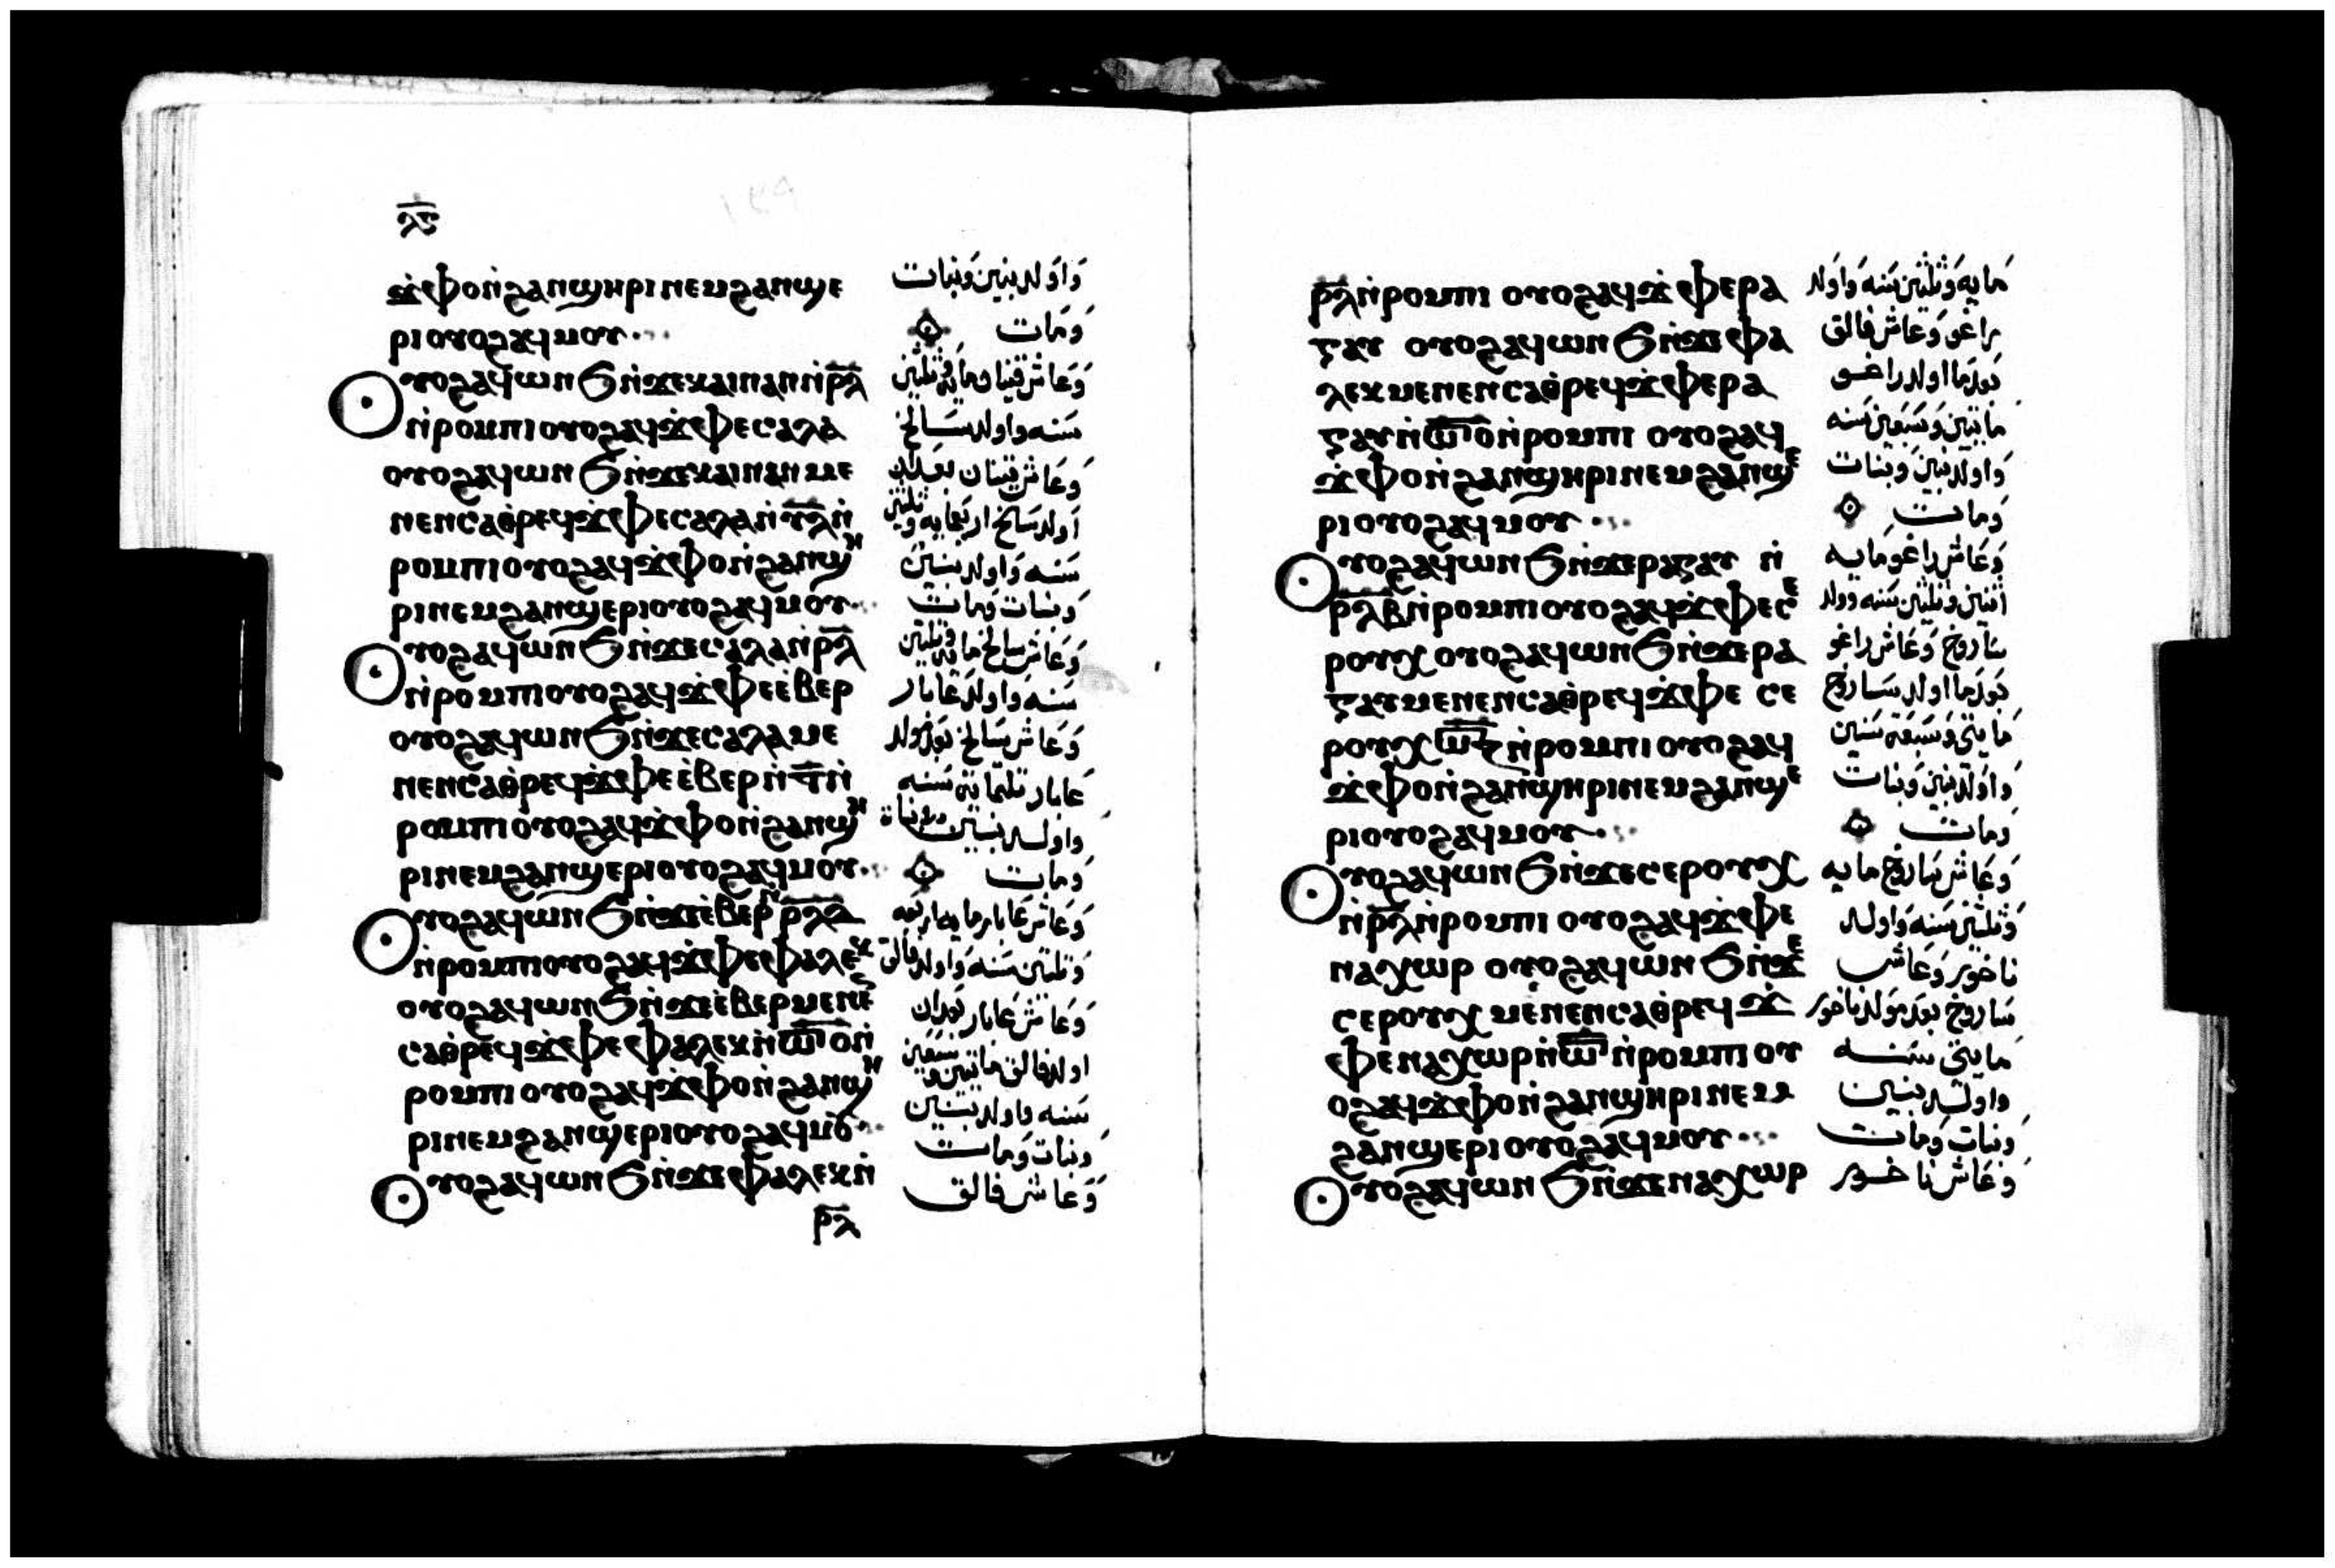 ⲗⲋ
ϫⲫⲟⲛ̇ϩⲁⲛϣⲏⲣⲓⲛⲉⲙϩⲁⲛϣⲉ
ⲣⲓⲟⲩⲟϩⲁϥⲙⲟⲩ
ⲟⲩⲟϩⲁϥⲱⲛϧⲛ̇ϫⲉⲕⲁⲓⲛⲁⲛⲛ̇ⲣ̅ⲗ̅
ⲛ̇ⲣⲟⲙⲡⲓⲟⲩⲟϩⲁϥϫ̇ⲫⲉⲥⲁⲗⲁ
ⲟⲩⲟϩⲁϥⲱⲛϧⲛ̇ϫⲉⲕⲁⲓⲛⲁⲛⲙⲉ
ⲛⲉⲛⲥⲁⲑⲣⲉϥϫ̇ⲫⲉⲥⲁⲗⲁⲛ̇ⲩ̅ⲗ̅ⲛ̇
ⲣⲟⲙⲡⲓⲟⲩⲟϩⲁϥϫ̇ⲫⲟⲛ̇ϩⲁⲛϣⲏ
ⲣⲓⲛⲉⲙϩⲁⲛϣⲉⲣⲓⲟⲩⲟϩⲁϥⲙⲟⲩ
ⲟⲩⲟϩⲁϥⲱⲛϧⲛ̇ϫⲉⲥⲁⲗⲁⲛ̇ⲣ̅ⲗ̅
ⲛ̇ⲣⲟⲙⲡⲓⲟⲩⲟϩⲁϥϫ̇ⲫⲉⲉ̇ⲃⲉⲣ
ⲟⲩⲟϩⲁϥⲱⲛϧⲛ̇ϫⲉⲥⲁⲗⲁⲙⲉ
ⲛⲉⲛⲥⲁⲑⲣⲉϥϫ̇ⲫⲉⲉ̇ⲃⲉⲣⲛ̇ⲧ̅ⲛ̇
ⲣⲟⲙⲡⲓⲟⲩⲟϩⲁϥϫ̇ⲫⲟⲛ̇ϩⲁⲛϣⲏ
ⲣⲓⲛⲉⲙϩⲁⲛϣⲉⲣⲓⲟⲩⲟϩⲁϥⲙⲟⲩ
ⲟⲩⲟϩⲁϥⲱⲛϧⲛ̇ϫⲉⲉ̇ⲃⲉⲣⲛ̇ⲣ̅ⲗ̅ⲇ̅
ⲛ̇ⲣⲟⲙⲡⲓⲟⲩⲟϩⲁϥϫ̇ⲫⲉⲫⲁⲗⲉⲕ
ⲟⲩⲟϩⲁϥⲱⲛϧⲛ̇ϫⲉⲉ̇ⲃⲉⲣⲙⲉⲛⲉⲛ
ⲥⲁⲑⲣⲉϥϫ̇ⲫⲉⲫⲁⲗⲉⲕⲛ̇ⲥ̅ⲟ̅ⲛ̇
ⲣⲟⲙⲡⲓⲟⲩⲟϩⲁϥϫ̇ⲫⲟⲛ̇ϩⲁⲛϣⲏ
ⲣⲓⲛⲉⲙϩⲁⲛϣⲉⲣⲓⲟⲩⲟϩⲁϥⲙⲟⲩ
ⲟⲩⲟϩⲁϥⲱⲛϧⲛ̇ϫⲉⲫⲁⲗⲉⲕⲛ̇
ⲣ̅ⲗ̅
واولد بنين وبنات
ومات
وعاش قينان مايه وثلثين
سنه واولد سالخ
وعاش قينان بعد ان
اولد سالخ اربعمايه وثلثين
سنه واولد بنين
وبنات ومات
وعاش سالخ مايه وثلثين
سنه واولد عابار
وعاش سالخ بعد مولد
عابار ثلثمايه سنه
واولد بنين وبناة
ومات
وعاش عابار مايه اربعه
وثلثين سنه واولد فالق
وعاش عابار بعد ان
اولد فالق مايتين وسبعين
سنه واولد بنين
وبنات ومات
وعاش فالق
ⲣ̅ⲗ̅ⲛ̇ⲣⲟⲙⲡⲓ ⲟⲩⲟϩⲁϥϫ̇ⲫⲉⲣⲁ
ⲅⲁⲩ ⲟⲩⲟϩⲁϥⲱⲛϧⲛ̇ϫⲉⲫⲁ
ⲗⲉⲕⲙⲉⲛⲉⲛⲥⲁⲑⲣⲉϥϫ̇ⲫⲉⲣⲁ
ⲅⲁⲩⲛ̇ⲥ̅ⲟ̅ⲛ̇ⲣⲟⲙⲡⲓ ⲟⲩⲟϩⲁϥ
ϫ̇ⲫⲟⲛ̇ϩⲁⲛϣⲏⲣⲓⲛⲉⲙϩⲁⲛϣⲉ
ⲣⲓⲟⲩⲟϩⲁϥⲙⲟⲩ
ⲟⲩⲟϩⲁϥⲱⲛϧⲛ̇ϫⲉⲣⲁⲅⲁⲩ ⲛ̇
ⲣ̅ⲗ̅ⲃ̅ⲛ̇ⲣⲟⲙⲡⲓⲟⲩⲟϩⲁϥϫ̇ⲫⲉⲥⲉ
ⲣⲟⲩⲭⲟⲩⲟϩⲁϥⲱⲛϧⲛ̇ϫⲉⲣⲁ
ⲅⲁⲩⲙⲉⲛⲉⲛⲥⲁⲑⲣⲉϥϫ̇ⲫⲉ ⲥⲉ
ⲣⲟⲩⲭⲥ̅ⲍ̅ⲛ̇ⲣⲟⲙⲡⲓⲟⲩⲟϩⲁϥ
ϫ̇ⲫⲟⲛ̇ϩⲁⲛϣⲏⲣⲓⲛⲉⲙϩⲁⲛϣⲉ
ⲣⲓⲟⲩⲟϩⲁϥⲙⲟⲩ
ⲟⲩⲟϩⲁϥⲱⲛϧⲛ̇ϫⲉⲥⲉⲣⲟⲩⲭ
ⲛ̇ⲣ̅ⲗ̅ⲛ̇ⲣⲟⲙⲡⲓ ⲟⲩⲟϩⲁϥϫ̇ⲫⲉ
ⲛⲁⲭⲱⲣ ⲟⲩⲟϩⲁϥⲱⲛϧⲛ̇ϫⲉ
ⲥⲉⲣⲟⲩⲭⲙⲉⲛⲉⲛⲥⲁⲑⲣⲉϥϫ̇
ⲫⲉⲛⲁⲭⲱⲣⲛ̇ⲥ̅ⲛ̇ⲣⲟⲙⲡⲓⲟⲩ
ⲟϩⲁϥϫ̇ⲫⲟⲛ̇ϩⲁⲛϣⲏⲣⲓⲛⲉⲙ
ϩⲁⲛϣⲉⲣⲓⲟⲩⲟϩⲁϥⲙⲟⲩ
ⲟⲩⲟϩⲁϥⲱⲛϧⲛ̇ϫⲉⲛⲁⲭⲱⲣ
مايه وثلثين سنه واولد
راغو وعاش فالق
بعد ما اولد راغو
مايتين وسبعين سنه
واولد بنين وبنات
ومات
وعاش راغو مايه
اثنين وثلثين سنه وولد
ساروخ وعاش راغو
بعد ما اولد ساروخ
مايتى وسبعة سنين
واولد بنين وبنات
ومات
وعاش ساروخ مايه
وثلثين سنه واولد
ناخور وعاش
ساروخ بعد مولد ناخور
مايتى سنه
واولد بنين
وبنات ومات
وعاش ناخور